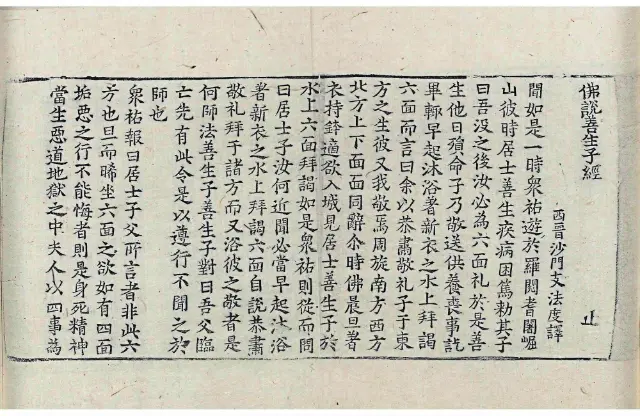 佛說善生子經
止
西晉沙門支法度譯
聞如是一時衆祐遊於羅閱耆闍崛
山彼時居士善生疾病困篤勑其子
曰吾沒之後汝必為六面礼於是善
生他日殞命子乃敬送供養喪事訖
畢輙早起沐浴著新衣之水上拜謁
六面而言曰余以恭肅敬礼子于東
方之生彼又我敬焉周旋南方西方
北方上下面面同辭尒時佛晨旦著
衣持鉢適欲入城見居士善生子於
水上六面拜謁如是衆祐則從而問
曰居士子汝何近聞必當早起沐浴
著新衣之水上拜謁六面自說恭肅
敬礼拜于諸方而又浴彼之敬者是
何師法善生子善生子對曰吾父臨
亡先有此令是以遵行不聞之於
師也
衆祐報曰居士子父所言者非此六
方也旦而晞坐六面之欲如有四面
垢惡之行不能悔者則是身死精神
當生惡道地獄之中夫人以四事為